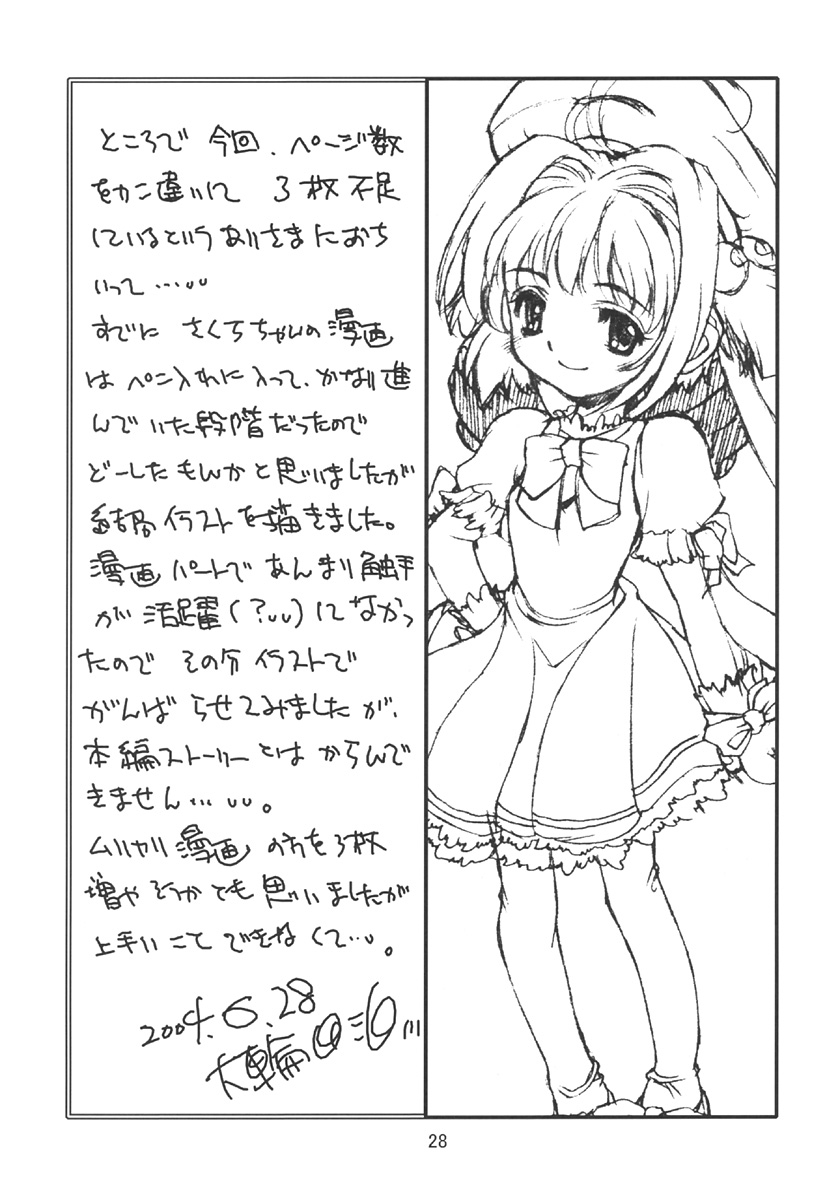 ところで 今回、ページ数
をかン違いして 3枚不足
しているというありさまにおち
いって…
すでに さくらちゃんの漫画
は ペン入れに入って、かなり進
んでいた段階だったので
どーしたもんかと思いましたが
結局イラストを描きました。
漫画パートであんまり触手
が活躍(?)してなかっ
たので その分イラストで
がんばらせてみましたが、
本編ストーリーとはからんで
きません…。
ムリヤリ漫画の方を3枚
増やそうかとも思いましたが
上手いことできなくて…。
2004.6.28
28